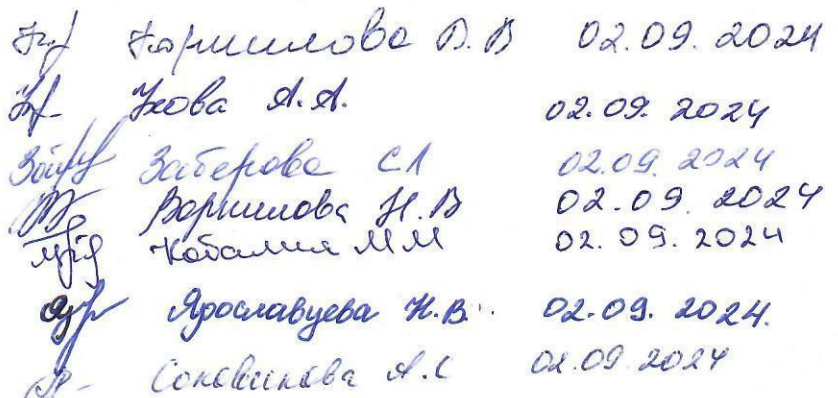 В. В 02.09.2024
Ухова А.А. 02.09.2024
Заберова СЛ 02.09.2024
Ворошилова Н.В 02.09.2024
ММ 02.09.2024
Ярославцева Н.В. 02.09.2024.
Соковикова А.С 02.09.2024